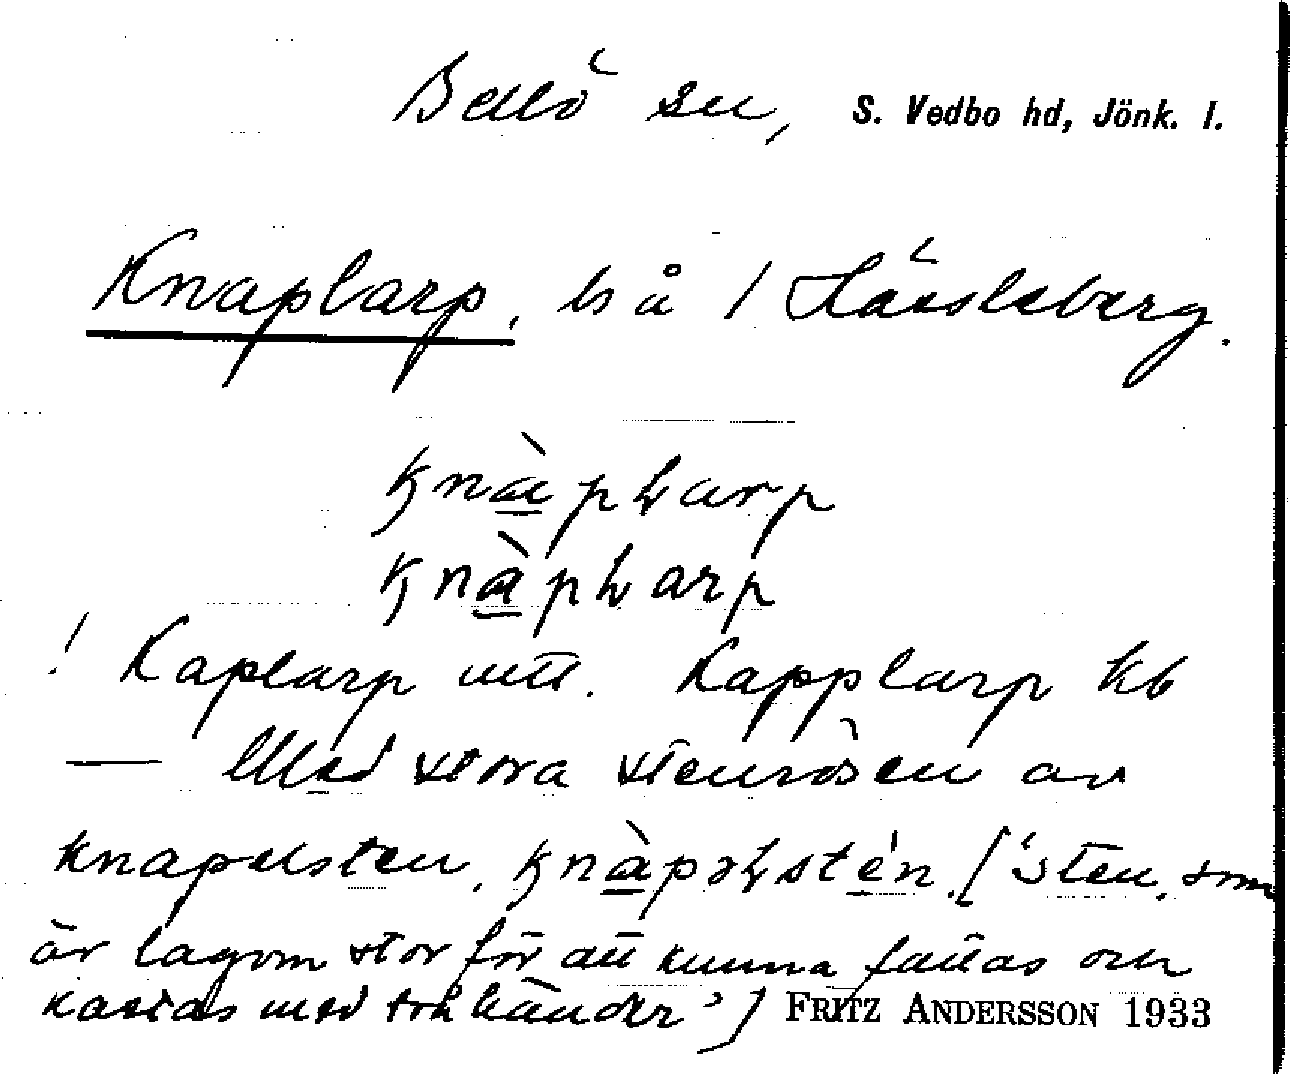 Bellö sn, S. Vedbo hd, Jönk. l.
Knaplarp, bs å / Hässleberg.
knàplarp
knàplarp
! Kaplarp utt. Kapplarp kb
— Med stora stenrösen av
knapelsten, knàpəlsté̀n. ['sten, som
är lagom stor för att kunna fattas och
kastas med två händer'] FRITZ ANDERSSON 1933